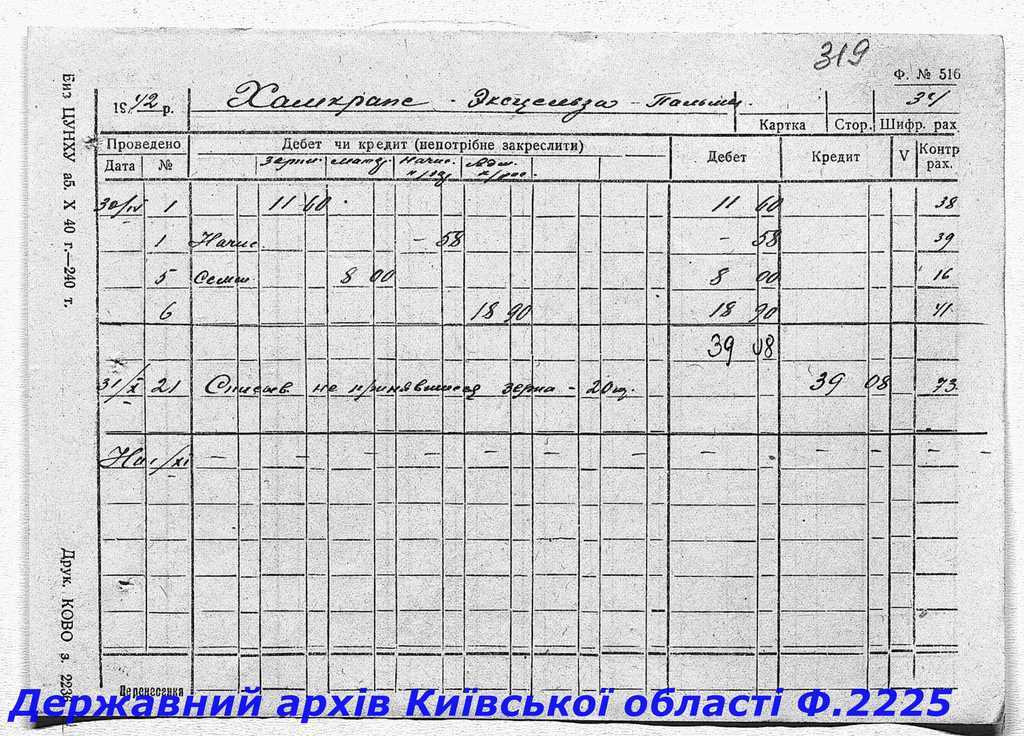 319
Ф. № 516
1942 р. Хамекрапс - Эксцельза - Пальмы. 34
Картка Стор. Шифр. рах
Проведено Дебет чи кредит (непотрібне закреслити) Дебет Кредит V Контр рах.
Дата №
30/IV 1 11 60 11 60 38
1 Начис. - 58 - 58 39
5 Семен 8 00 8 00 16
6 18 90 18 90 41
39 08
31/X 21 Списыв не принявшиеся зерна - 20 39 08 73
На 1/XI - - - - - - - - - -
Перенесення
Биз ЦУНХУ аб. X 40 г.—240 т.
Друк. КОВО з. 2236
Державний архів Київської області Ф.2225